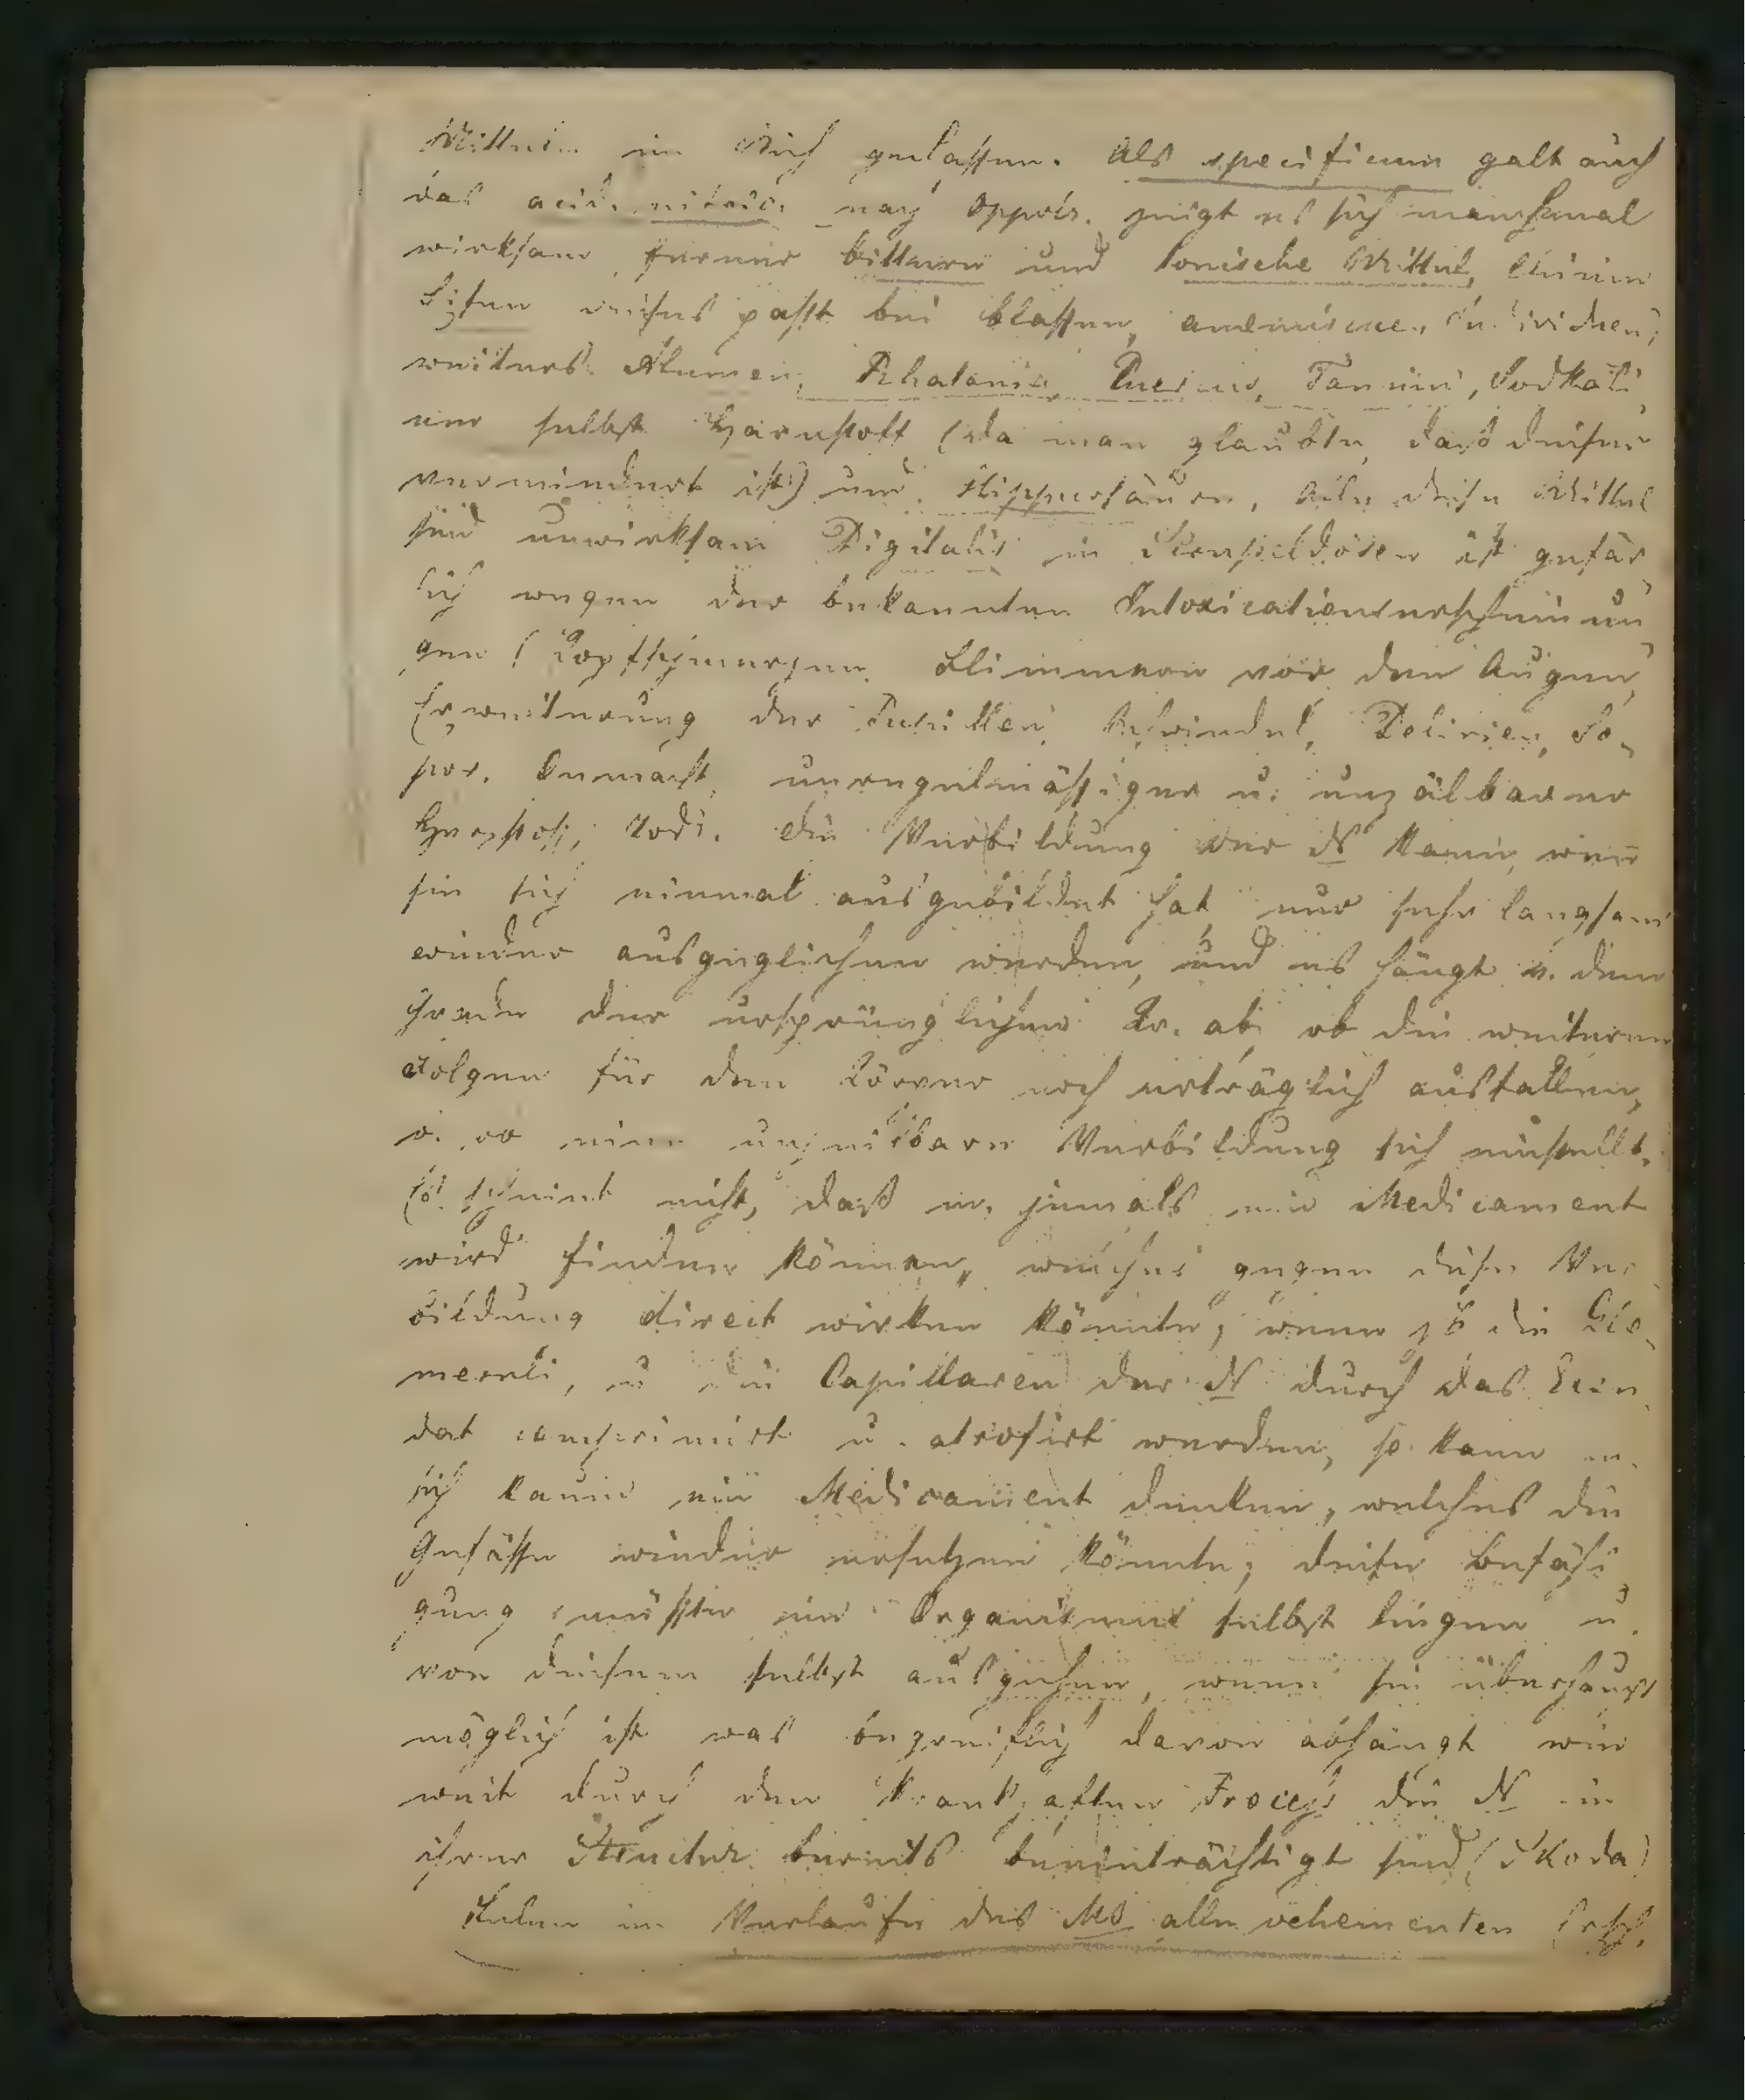 Mitteln im Stich gelassen. Als specificum galt auch
das acid. nitric. nach Oppolz. zeigt es sich manchmal
wirksam, ferner bittere und tonische Mittel, Chinin
Eisen welches passt bei blassen, anemischen Individuen;
weiters Alumen, Rhatania, Quercus, Tannin, Jodkali,
nur selbst Harnstoff (da man glaubte, dass dieser
vermindert ist) und Hippursäure, Alle diese Mittel
sind unwirksam Digitalis in Dosen ist gefär
lich wegen der bekannten Intoxicationserscheinun
gen (Kopfschmerzen, Flimmern vor den Augen,
Erweiterung der Pupillen, Schwindel, Delirien, So-
por, Onmacht, unregelmässiger u. unzälbarer
Herzstoss, Tod). Die Verbildung der N kann, wenn
sie sich einmal ausgebildet hat nur sehr langsam
wieder ausgeglichen werden, und es hängt v. dem
Grade der ursprünglichen Kr. ab, ob die weiteren
Folgen für den Körper noch erträglich ausfallen,
o. ob eine unheilbare Verbildung sich einstellt.
Es scheint nicht, dass m. jemals ein Medicament
wird finden können, welches gegen diese Ver
bildung direct wirken könnte; wenn zB die Glo-
meruli, u die Capillaren der N durch das Exsu
dat comprimirt u. atrofirt werden, so kann m.
sich kaum ein Medicament denken, welches die
Gefässe wieder ersetzen könnte; diese Befähi
gung müsste im Organismus selbst liegen u.
von diesem selbst ausgehen, wenn sie überhaupt
möglich ist was begreiflich davon abhängt wie
weit durch den krankhaften Process die N in
ihrer Structur bereits beeinträchtigt sind (Skoda)
Treten im Verlaufe des MB alle vehementen Ersch.